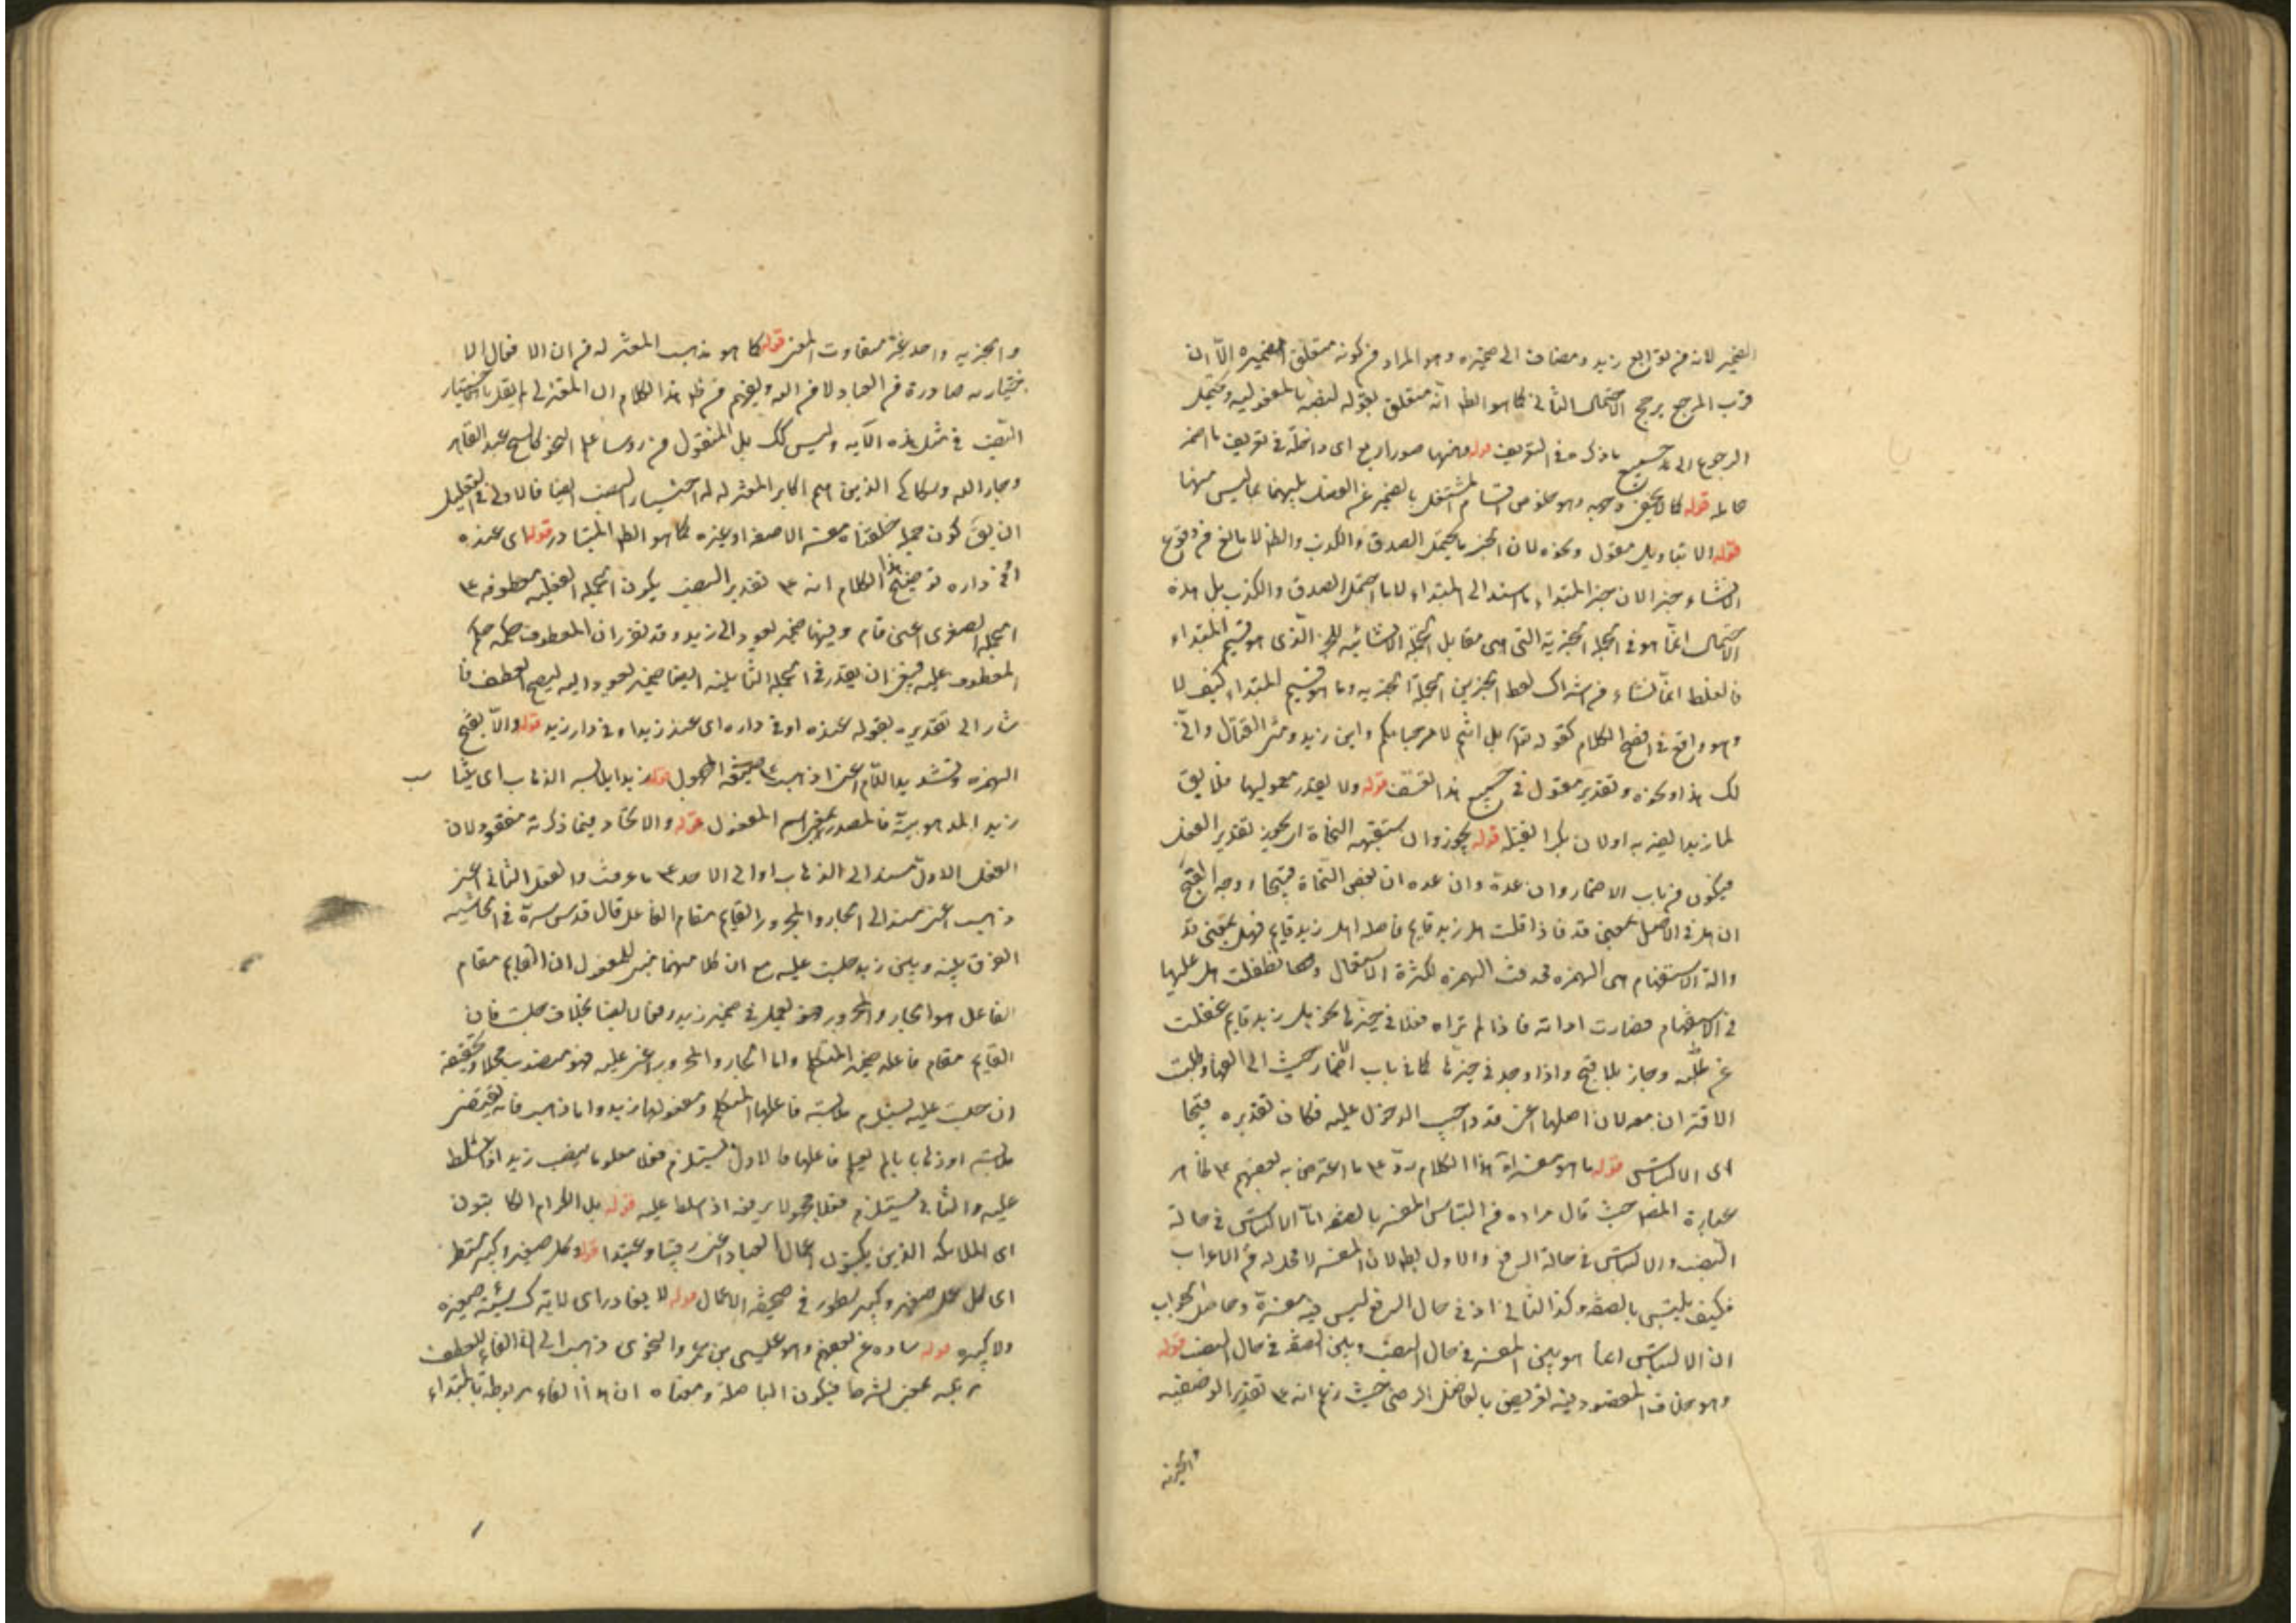 الضمير لانه من توابع زيد ومضاف الى ضميره وهو المراد من كونه متعلق الضميره الّا ان
قرب المرجع يرجح الاحتمال الثانى كما هو الظ انه متعلق بقوله لنصبه بالمفعوليه ويحتمل
الرجوع الى جميع ما ذكر فى التعريف قوله فههنا صور اربع اى داخلة فى تعريف ما اضمر
عامله قوله كما لا يخفى وجهه وهو خلوص المشتغل بالضمير عن الفعل يليهما ما ليس منهما
قوله الا بتاويل مقول ونحوه لان الخبر ما يحتمل الصدق والكذب والظ لا مانع من وقوع
الانشاء خبرا لان خبر المبتداء ما اسند الى المبتداء لا ما احتمل الصدق والكذب بل هذه
الاحتمال انما هو فى الجملة الخبرية التى هى مقابل الجملة الانشائيه للخبر الذى هو قسيم المبتداء
فالغلط انما نشاء من اشتراك لفظ الخبر بين الجملة الخبريه وما هو قسيم المبتداء كيف لا
وهو واقع فى افصح الكلام كقوله تعا بل انتم لا مرحبا بكم واين زيد ومتى القتال وانّى
لك هذا ونحوه وتقدير مقول فى جميع هذا تعسف قوله ولا يقدر معموليهما فلا يق
لما زيدا يضربه اولان بكرا يقتله قوله يجوز وان استقبحه النحاة اى يجوز تقدير الفعل
فيكون من باب الاضمار وان عده وان عده ان بعض النحاة قبيحا ووجه القبح
ان هل فى الاصل بمعنى قد فاذا قلت هل زيد قايم فاصله اهل زيد قايم فهل بمعنى قد
والة الاستفهام هى الهمزه فحذفت الهمزه لكثرة الاستعمال وتطفلت هل عليها
فى الاستفهام فصارت اداته فاذا لم تراه فعلا فى حيزها نحو هل زيد قايم غفلت
عنه وجاز بلا قبح واذا وجد فى حيزها كما فى باب الاضمار حنت الى العهد وطلبت
الاقتران معه لان اصلها اعنى قد واجب الدخول عليه فكان تقديره قبيحا
اى الالتباس قوله ما هو مفسراه هذا الكلام ردّ على ما اعترض به بعضهم على ظاهر
عبارة المص حيث قال مراده من التباس المفسر بالصفه اما الالتباس فى حالة
النصب والالتباس فى حالة الرفع والاول بط لان المفسر لا محل له من الاعراب
فكيف يلتبس بالصفه وكذا الثانى اذ فى حال الرفع ليس فيه مفسرة وحاصل الجواب
ان الالتباس انما هو بين المفسر فى حال النصب وبين الصفة فى حال النصب قوله
وهو بخلاف المقصود فيه تعريض بالفاضل الرضى حيث زعم انه على تقدير الوصفيه
والخبريه
والخبريه واحد غير متفاوت المعنى قوله كما هو مذهب المعتزله من ان الافعال الا
ختياريه صادرة من العباد لا من الله ويفهم من ظ هذا الكلام ان المعتزلى لم يقل باختيار
النصب فى مثل هذه الآيه وليس كك بل المنقول من روسا علم النحو كالشيخ عبد القاهر
وجار الله وسكاكى الذين هم اكابر المعتزله له اختيار النصب ايضا فالاولى فى التعليل
ان يق كون جملة خلقناه مفسرا لا صفة او غيره كما هو الظ المتبادر قوله اى عنده
او فى داره توضيح هذا الكلام انه على تقدير النصب يكون الجملة الفعليه معطوفه على
الجملة الصغرى اعنى قام وفيها ضمير يعود الى زيد وقد تقرر ان المعطوف حكمه حكم
المعطوف عليه فينبغى ان يقدر فى الجملة الثانية ايضا ضمير يعود اليه ليصح العطف فا
شار الى تقديره بقوله عنده او فى داره اى عند زيد او فى دار زيد قوله والّا بفتح
الهمزه وتشديد اللام اعنى اذهب على صيغة المجهول قوله زيدا يلابسه الذهاب اى
زيد المذهوب به فالمصدر بمعنى اسم المفعول قوله والاتحاد فيما ذكرته مفقود لان
الفعل الاول مسند الى الذهاب او الى الاحد على ما عرفت والفعل الثانى اعنى
ذهب اعنى مسند الى الجار والمجرور القايم مقام الفاعل قال قدس سره فى الحاشيه
الفرق بينه وبين زيد جلست عليه مع ان كلا منهما مفسر للمفعول ان القايم مقام
الفاعل هو الجار والمجرور فهو يعمل فى ضمير زيد رفعا لا نصبا بخلاف جلست فان
القايم مقام فاعله ضمير المتكلم واما الجار والمجرور اعنى عليه فهو منصوب محلا وتحقيقه
ان جلست عليه يستلزم ملابسة فاعلها المتكلم ومفعولها زيد واما ذهب فانه يقتضى
ملابسه او ذهابا بالم يعلم فاعلها فالاول يستلزم فعلا معلوما ينصب زيد اذا سلط
عليه والثانى يستلزم فعلا مجهولا يرفعه اذ سلط عليه قوله بل الكرام الكاتبون
اى الملائكه الذين يكتبون اعمال العباد اعنى رقيبا وعتيدا قوله وكل صغير وكبير مستطر
اى كل عمل صغير وكبير مسطور فى صحيفة الاعمال قوله لا يغادر اى لا يترك سيئة صغيره
ولا كبيره قوله ساده عن بعضهم وهو عيسى بن عمر والنحوى ذهب الى ان الفاء للعطف
بمعنى الشرط فيكون اللام صلة ومعناه ان هذا الفاء مربوطة بالمبتداء